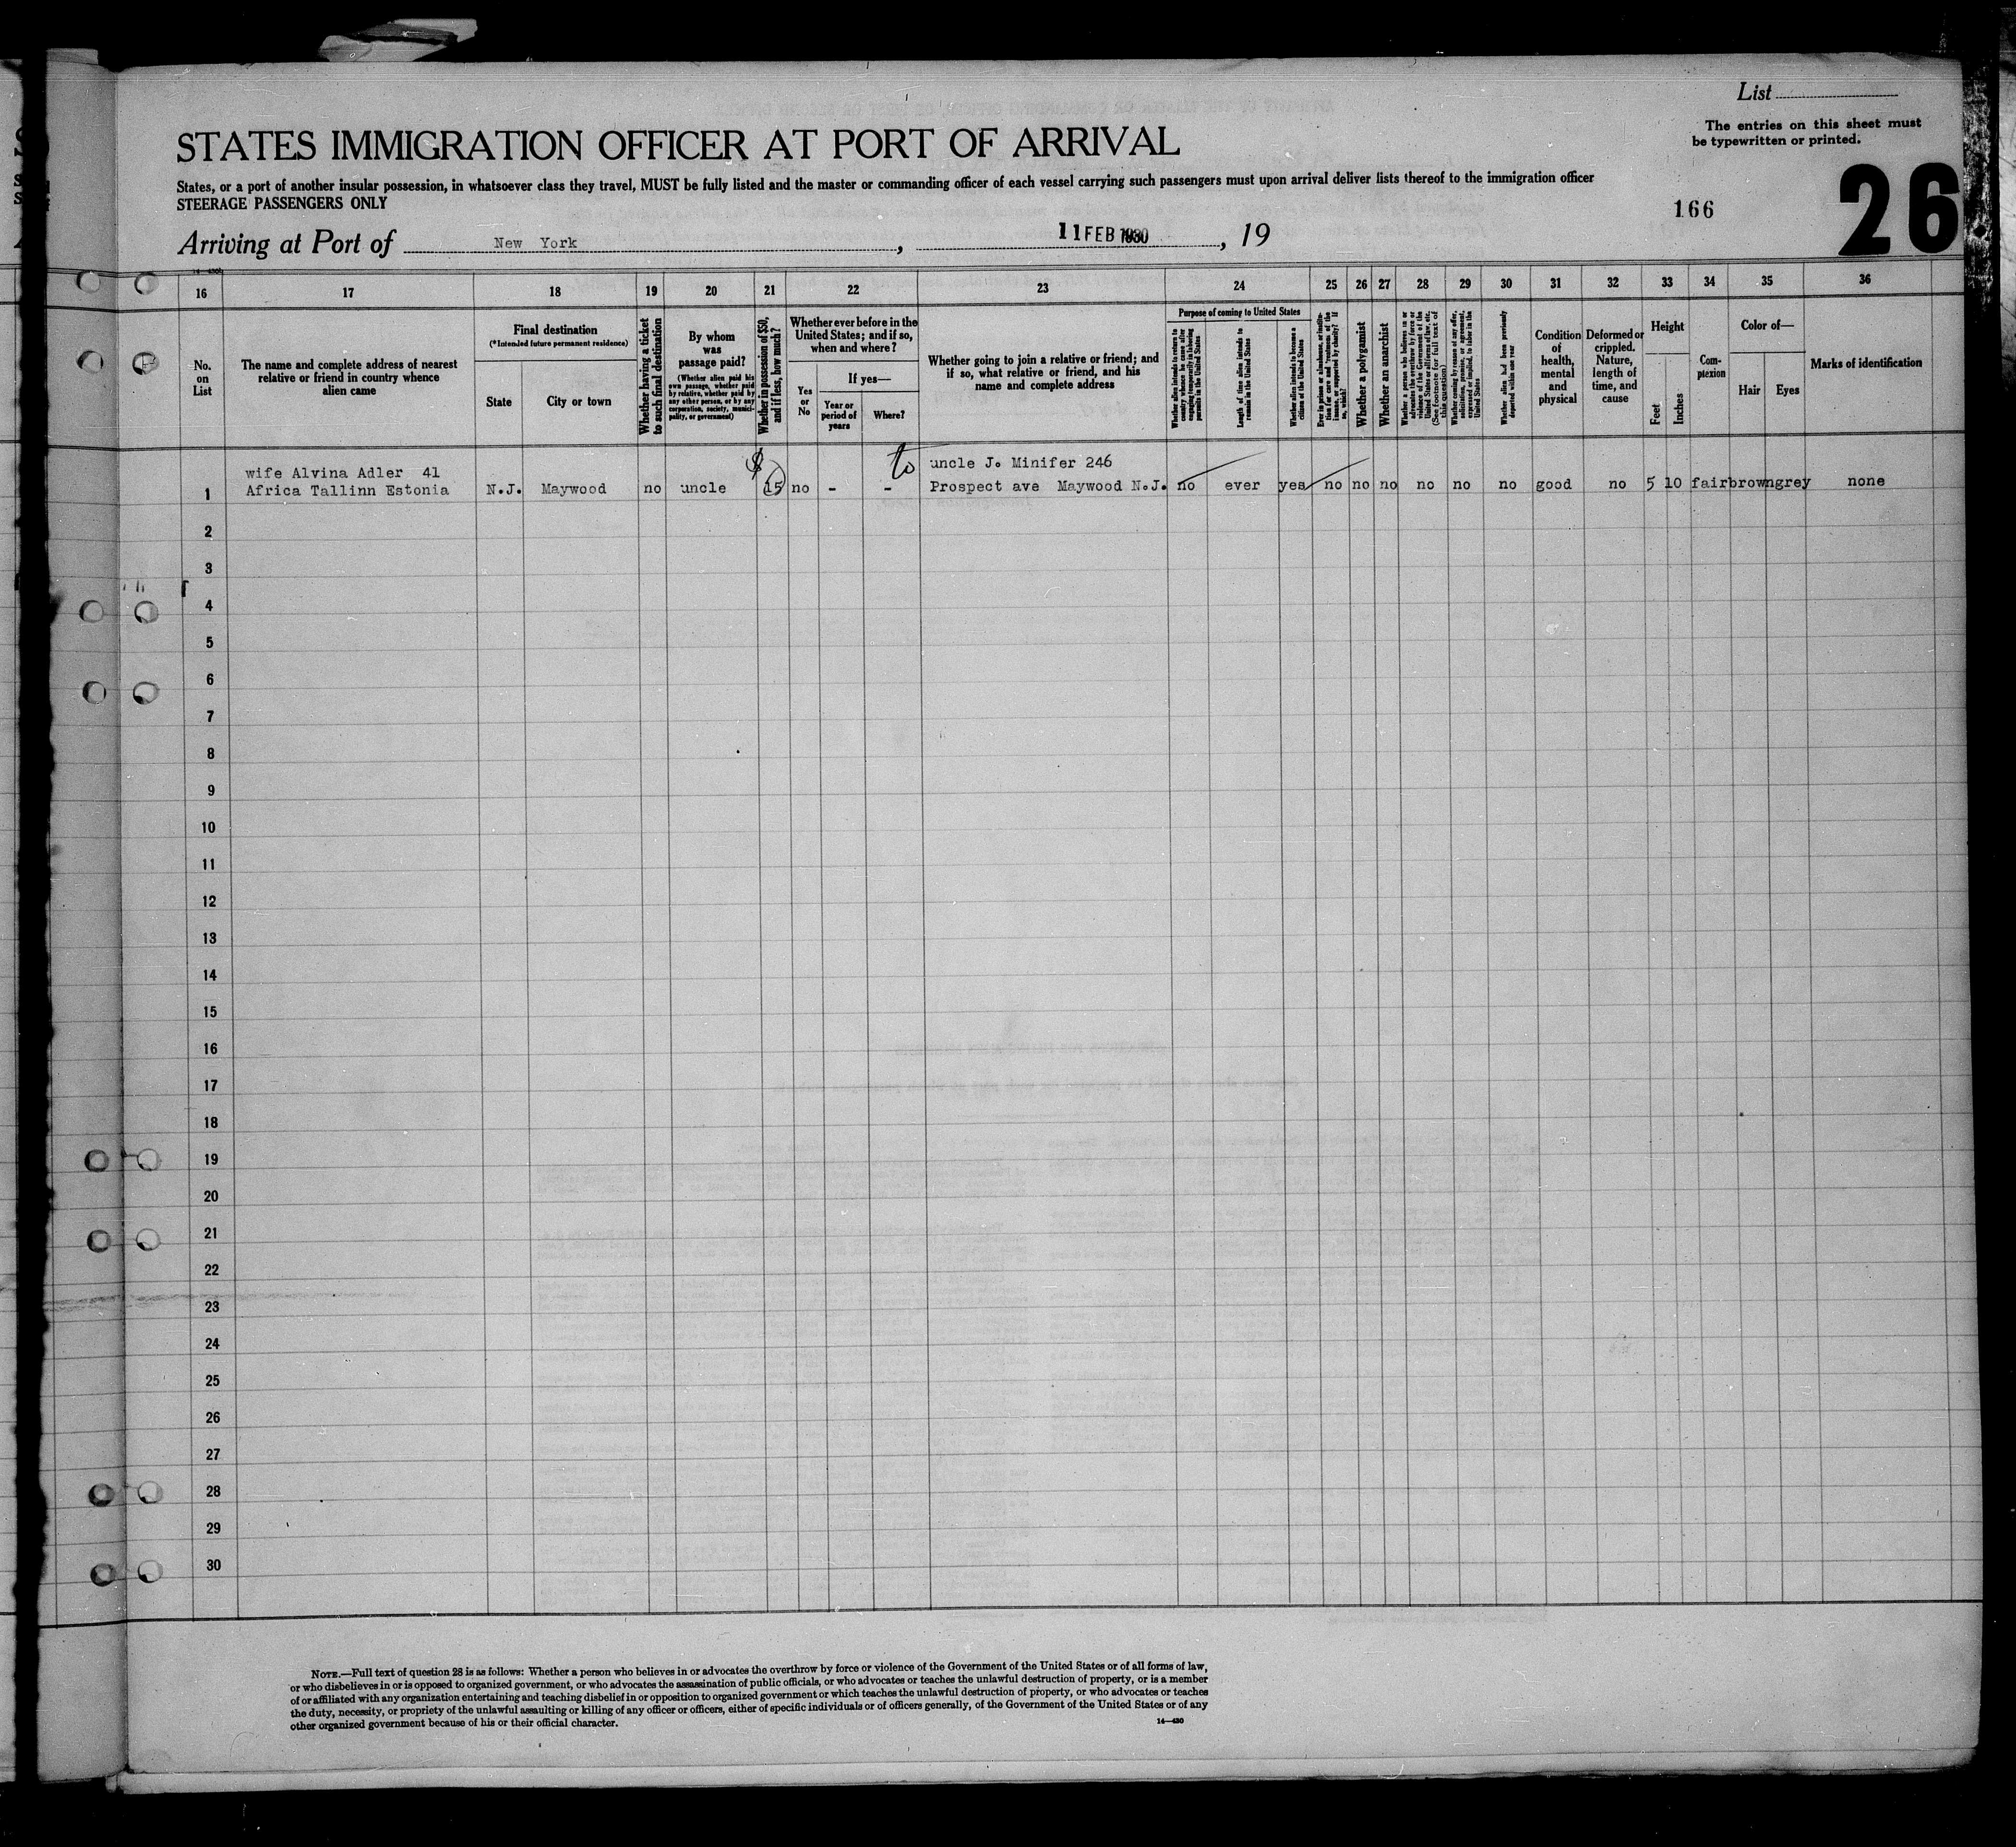 List
The entries on this sheet must
be typewritten or printed.
STATES IMMIGRATION OFFICER AT PORT OF ARRIVAL
States, or a port of another insular possession, in whatsoever class they travel, MUST be fully listed and the master or commanding officer of each vessel carrying such passengers must upon arrival deliver lists thereof to the immigration officer
STEERAGE PASSENGERS ONLY
166
26
Arriving at Port of New York, 11 FEB 1930, 19
16 17 18 19 20 21 22 23 24 25 26 27 28 29 30 31 32 33 34 35 36
No.
on
List
The name and complete address of nearest
relative or friend in country whence
alien came
Final destination
(*Intended future permanent residence)
State
City or town
Whether having a ticket
to such final destination
By whom
was
passage paid?
(Whether alien paid his
own passage, whether paid
by relative, whether paid by
any other person, or by any
corporation, society, munici-
pality, or government)
Whether in possession of $50,
and if less, how much?
Whether ever before in the
United States; and if so,
when and where?
Yes
or
No
If yes—
Year or
period of
years
Where?
Whether going to join a relative or friend; and
if so, what relative or friend, and his
name and complete address
Purpose of coming to United States
Whether alien intends to return to
country whence he came after
engaging temporarily in laboring
pursuits in the United States
Length of time alien intends to
remain in the United States
Whether alien intends to become a
citizen of the United States
Ever in prison or almshouse, or institu-
tion for care and treatment of the
insane, or supported by charity? If
so, which?
Whether a polygamist
Whether an anarchist
Whether a person who believes in or
advocates the overthrow by force or
violence of the Government of the
United States or all forms of law, etc.
(See footnote for full text of
this question)
Whether coming by reason of any offer,
solicitation, promise, or agreement,
expressed or implied, to labor in the
United States
Whether alien had been previously
deported within one year
Condition
of
health,
mental
and
physical
Deformed or
crippled.
Nature,
length of
time, and
cause
Height
Feet
Inches
Com-
plexion
Color of—
Hair
Eyes
Marks of identification
wife Alvina Adler 41 $ to uncle J. Minifer 246
1 Africa Tallinn Estonia N.J. Maywood no uncle 15 no - - Prospect ave Maywood N.J. no ever yes no no no no no no good no 5 10 fair brown grey none
2
3
4
5
6
7
8
9
10
11
12
13
14
15
16
17
18
19
20
21
22
23
24
25
26
27
28
29
30
NOTE.—Full text of question 28 is as follows: Whether a person who believes in or advocates the overthrow by force or violence of the Government of the United States or of all forms of law,
or who disbelieves in or is opposed to organized government, or who advocates the assassination of public officials, or who advocates or teaches the unlawful destruction of property, or is a member
of or affiliated with any organization entertaining and teaching disbelief in or opposition to organized government or which teaches the unlawful destruction of property, or who advocates or teaches
the duty, necessity, or propriety of the unlawful assaulting or killing of any officer or officers, either of specific individuals or of officers generally, of the Government of the United States or of any
other organized government because of his or their official character.
14—430